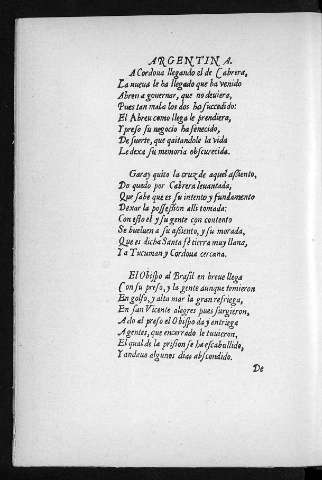 ARGENTINA.
A Cordoua llegando el de Cabrera,
La nueua le ha llegado que ha venido
Abreu a gouernar, que no deuiera,
Pues tan mal a los dos ha succedido:
El Abreu como llega le prendiera,
Y preso su negocio ha fenecido,
De suerte, que quitandole la vida
Le dexa su memoria obscurecida.
Garay quito la cruz de aquel assiento,
Do quedo por Cabrera leuantada,
Que sabe que es su intento y fundamento
Dexar la possession alli tomada:
Con esto el y su gente con contento
Se bueluen a su assiento, y su morada,
Que es dicha Santa fè tierra muy llana,
Y a Tucuman y Cordoua cercana.
El Obispo al Brasil en breue llega
Con su preso, y la gente aunque temieron
En golfo, y alta mar la gran refriega,
En san Vicente alegres pues surgieron,
A do al preso el Obispo da y entriega
A gentes, que encerrado le tuuieron,
El qual de la prision se ha escabullido,
Y andaua algunos dias abscondido.
De